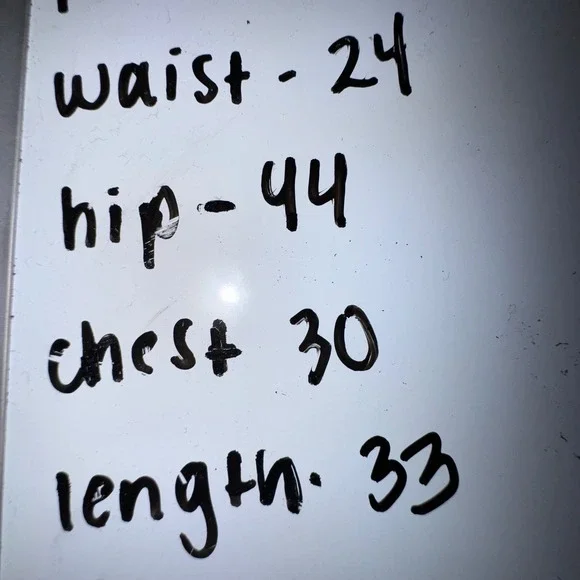 waist - 24
hip - 44
chest 30
length. 33